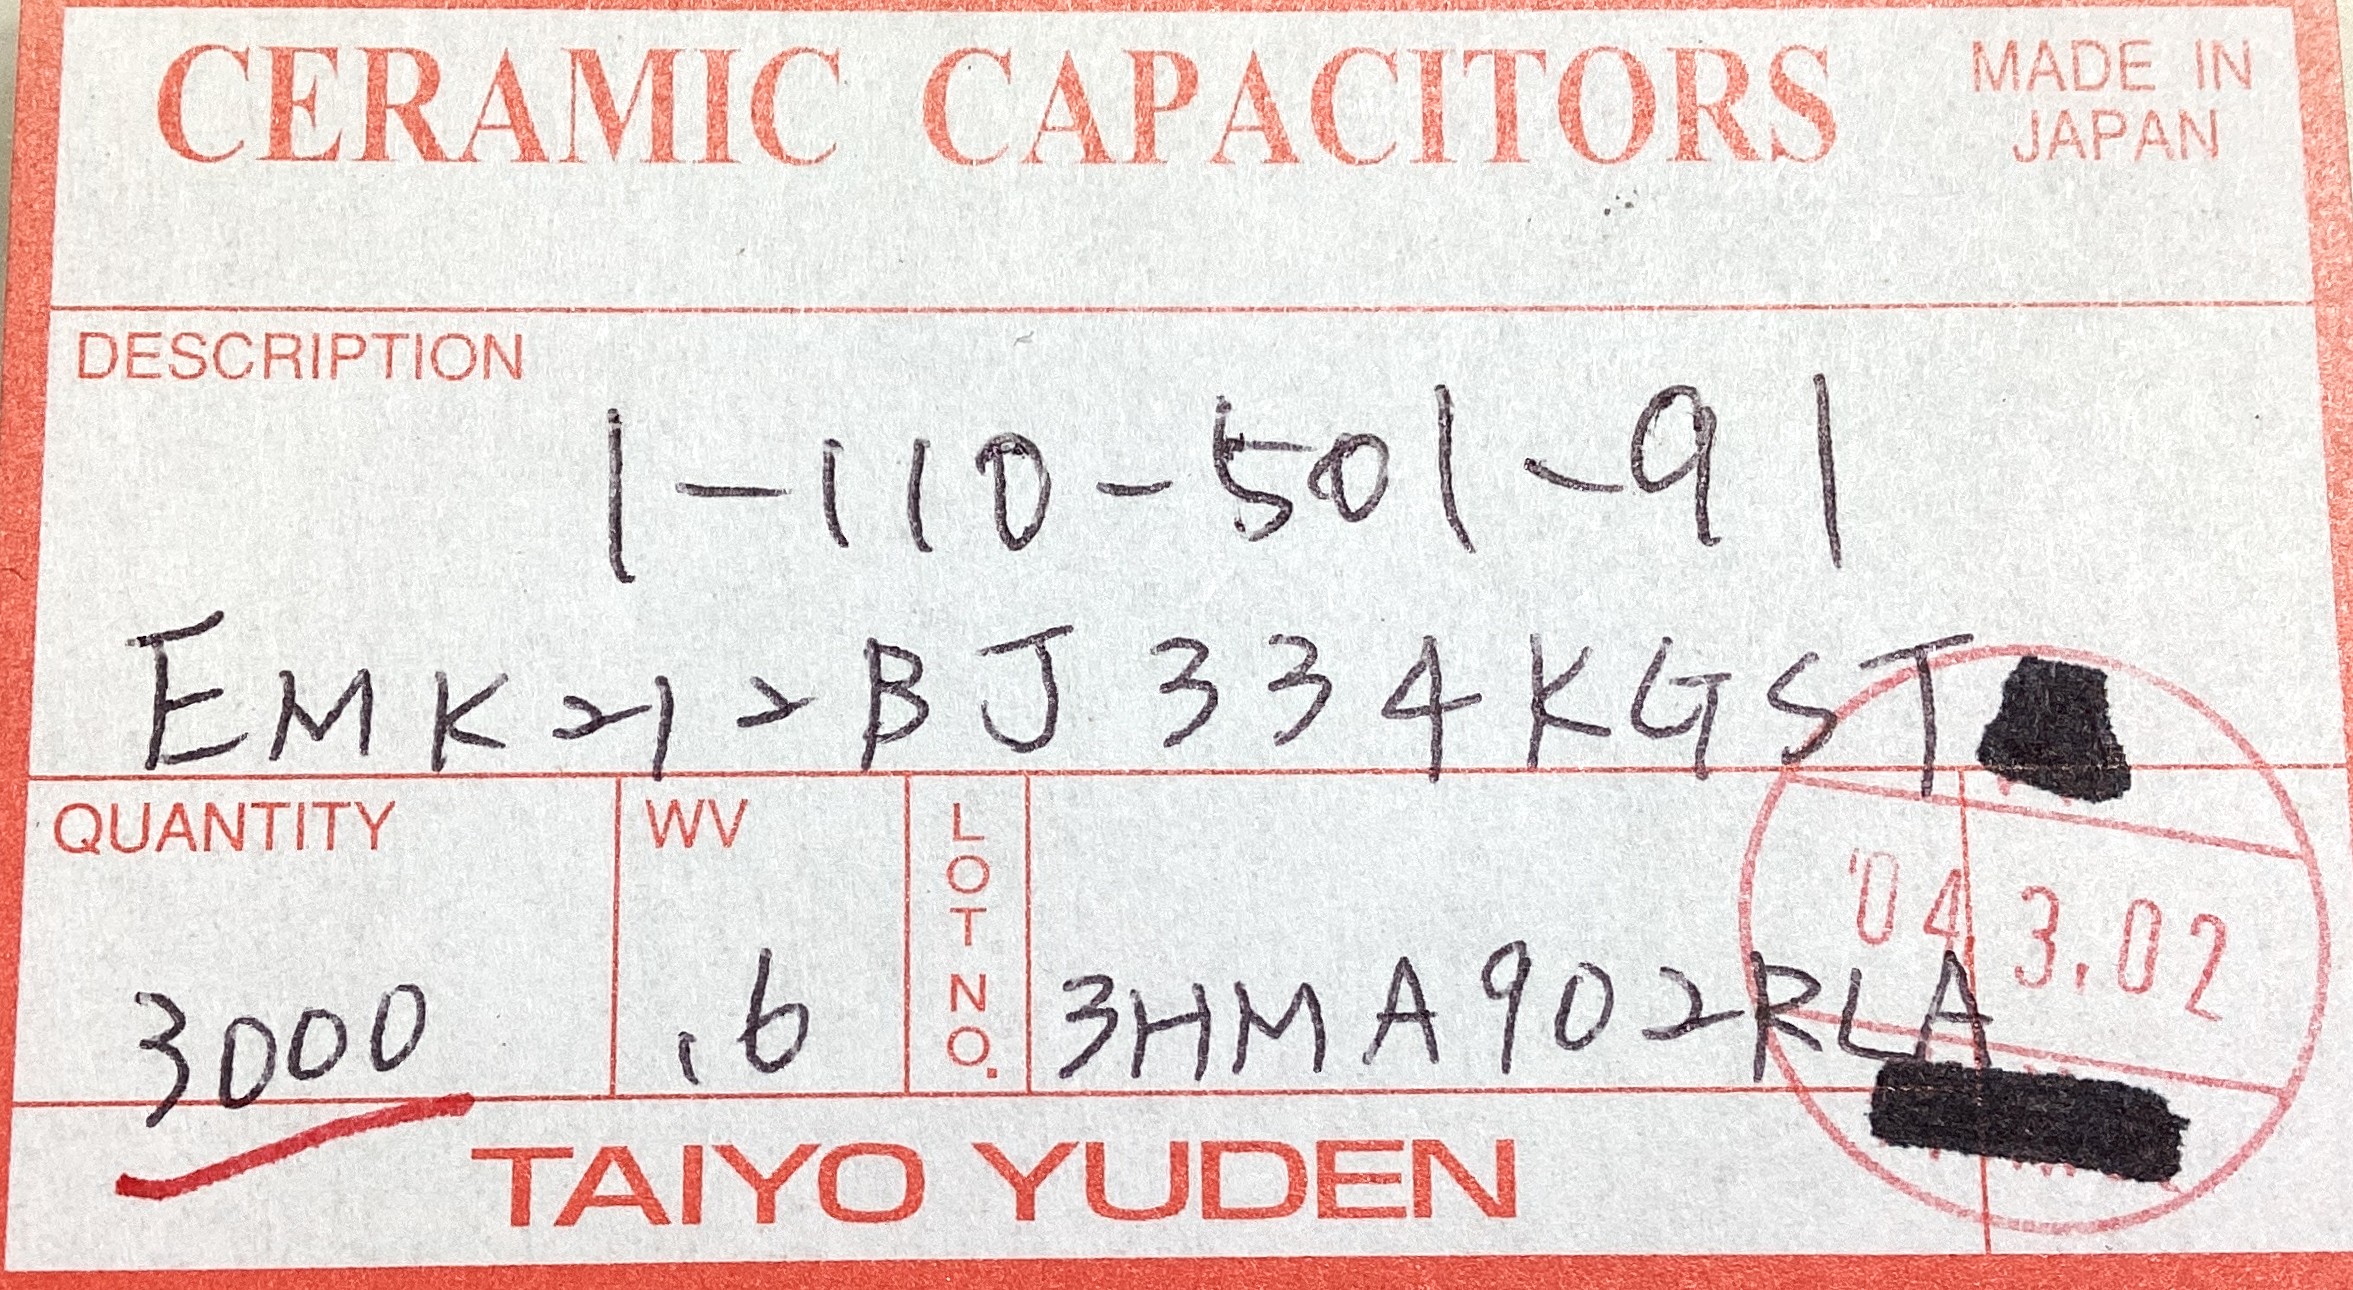 CERAMIC CAPACITORS
MADE IN
JAPAN
DESCRIPTION
1-110-501-91
EMK212BJ334KGST
QUANTITY
WV
LOT NO.
3000
.6
3HMA902RLA
'04.3.02
TAIYO YUDEN